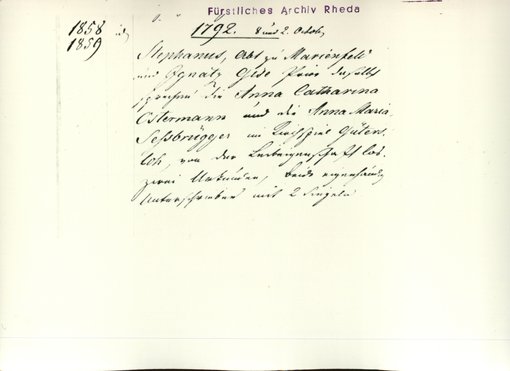 Fürstliches Archiv Rheda
1858
1859
1792. 8 und 2. Octob,
Stephanus, Abt zu Marienfeld
und Ignatz Gede Prior daselbst
sprechen die Anna Catharina
Ostermann und die Anna Maria
Sessbrügger im Kirchspiel Güters-
loh, von der Leibeigenschaft los.
zwei Urkunden, beide eigenhändig
unterschrieben mit 2 Siegeln